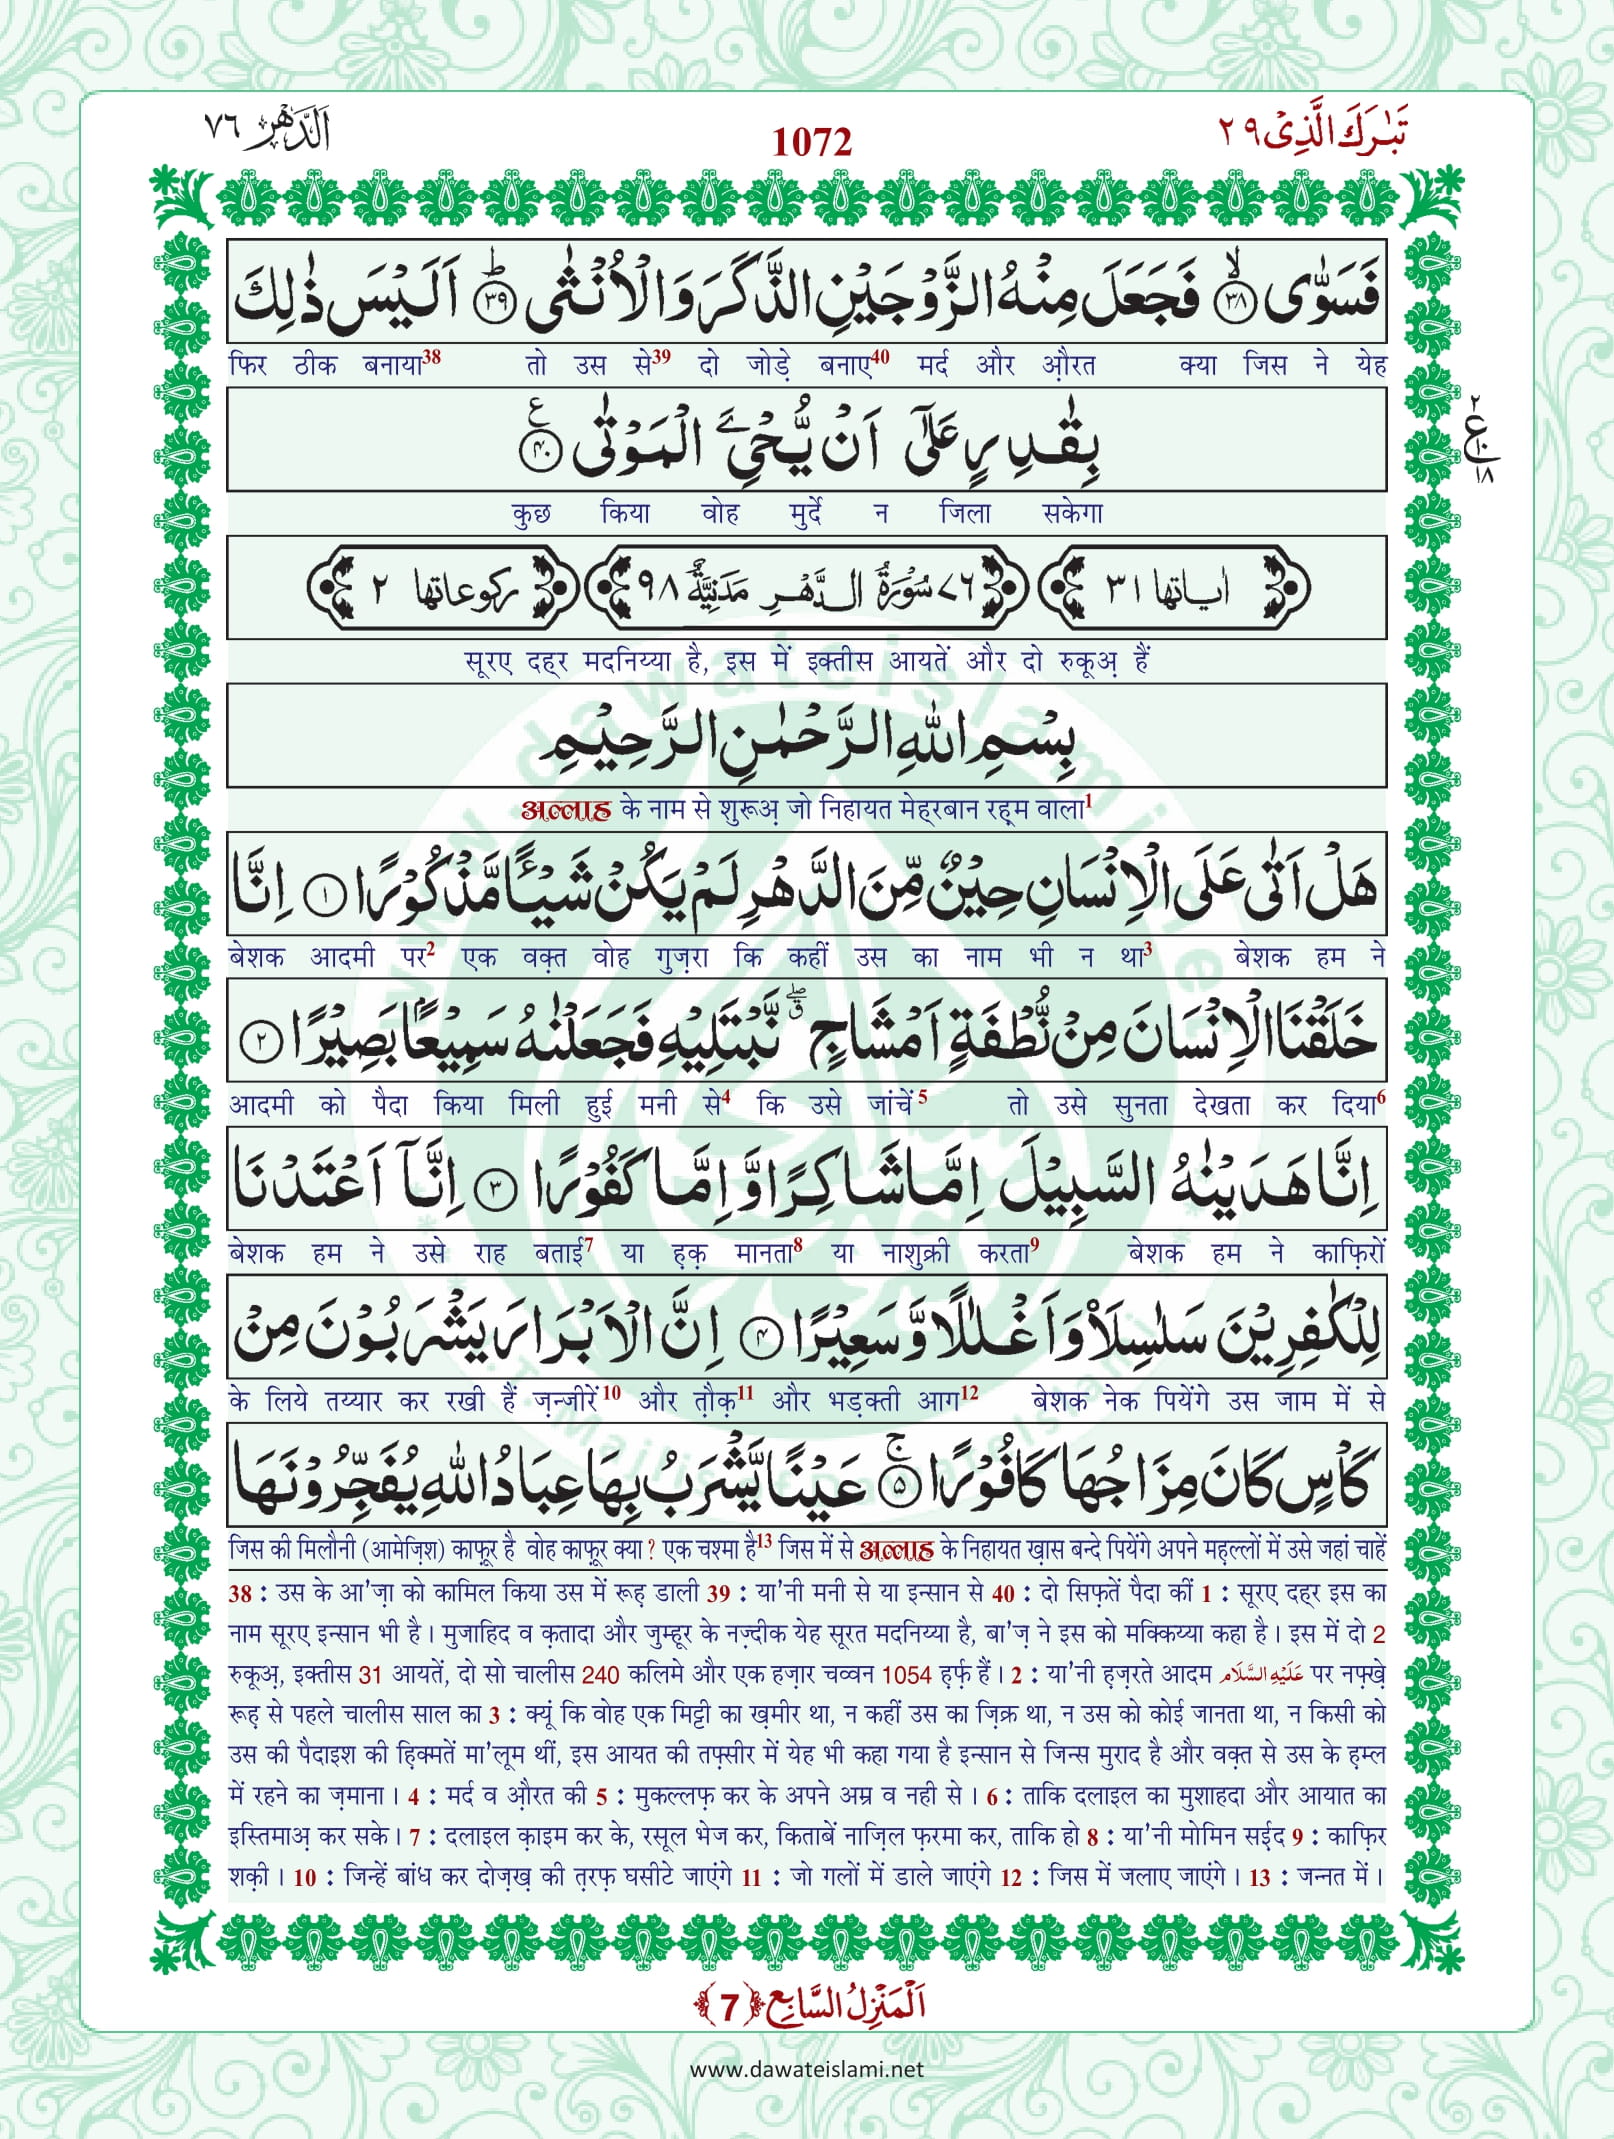 تَبٰرَكَ الَّذِیْ ٢٩
1072
اَلدَّهْر ٧٦
فَسَوّٰی ﴿٣٨﴾ۙ فَجَعَلَ مِنْهُ الزَّوْجَیْنِ الذَّكَرَ وَالْاُنْثٰی ﴿٣٩﴾ؕ اَلَیْسَ ذٰلِكَ
फिर ठीक बनाया38 तो उस से39 दो जोड़े बनाए40 मर्द और औ़रत क्या जिस ने येह
بِقٰدِرٍ عَلٰۤی اَنْ یُّحْیَِۧ الْمَوْتٰی ﴿٤٠﴾ع
कुछ किया वोह मुर्दे न जिला सकेगा
٢ ع ١٨
اٰیاتها ٣١ ٧٦ سُوْرَةُ الدَّهْرِ مَدَنِیَّةٌ ٩٨ ركوعاتها ٢
सूरए दह्र मदनिय्या है, इस में इक्तीस आयतें और दो रुकूअ़ हैं
بِسْمِ اللهِ الرَّحْمٰنِ الرَّحِیْمِ
अल्लाह के नाम से शुरूअ़ जो निहायत मेह्रबान रह़्म वाला1
هَلْ اَتٰی عَلَی الْاِنْسَانِ حِیْنٌ مِّنَ الدَّهْرِ لَمْ یَكُنْ شَیْـًٔا مَّذْكُوْرًا ﴿١﴾ اِنَّا
बेशक आदमी पर2 एक वक़्त वोह गुज़रा कि कहीं उस का नाम भी न था3 बेशक हम ने
خَلَقْنَا الْاِنْسَانَ مِنْ نُّطْفَةٍ اَمْشَاجٍ ۖۗ نَّبْتَلِیْهِ فَجَعَلْنٰهُ سَمِیْعًۢا بَصِیْرًا ﴿٢﴾
आदमी को पैदा किया मिली हुई मनी से4 कि उसे जांचें5 तो उसे सुनता देखता कर दिया6
اِنَّا هَدَیْنٰهُ السَّبِیْلَ اِمَّا شَاكِرًا وَّ اِمَّا كَفُوْرًا ﴿٣﴾ اِنَّاۤ اَعْتَدْنَا
बेशक हम ने उसे राह बताई7 या ह़क़ मानता8 या नाशुक्री करता9 बेशक हम ने काफ़िरों
لِلْكٰفِرِیْنَ سَلٰسِلَا۠ وَاَغْلٰلًا وَّ سَعِیْرًا ﴿٤﴾ اِنَّ الْاَبْرَارَ یَشْرَبُوْنَ مِنْ
के लिये तय्यार कर रखी हैं ज़न्जीरें10 और त़ौक़11 और भड़क्ती आग12 बेशक नेक पियेंगे उस जाम में से
كَاْسٍ كَانَ مِزَاجُهَا كَافُوْرًا ﴿٥﴾ۚ عَیْنًا یَّشْرَبُ بِهَا عِبَادُ اللهِ یُفَجِّرُوْنَهَا
जिस की मिलौनी (आमेज़िश) काफ़ूर है वोह काफ़ूर क्या ? एक चश्मा है13 जिस में से अल्लाह के निहायत ख़ास बन्दे पियेंगे अपने मह़ल्लों में उसे जहां चाहें
38 : उस के आ'ज़ा को कामिल किया उस में रूह़ डाली 39 : या'नी मनी से या इन्सान से 40 : दो सिफ़तें पैदा कीं 1 : सूरए दह्र इस का
नाम सूरए इन्सान भी है । मुजाहिद व क़तादा और जुम्हूर के नज़्दीक येह सूरत मदनिय्या है, बा'ज़ ने इस को मक्किय्या कहा है । इस में दो 2
रुकूअ़, इक्तीस 31 आयतें, दो सो चालीस 240 कलिमे और एक हज़ार चव्वन 1054 ह़र्फ़ हैं । 2 : या'नी ह़ज़रते आदम عَلَیْهِ السَّلَام पर नफ़्ख़े
रूह़ से पहले चालीस साल का 3 : क्यूं कि वोह एक मिट्टी का ख़मीर था, न कहीं उस का ज़िक्र था, न उस को कोई जानता था, न किसी को
उस की पैदाइश की ह़िक्मतें मा'लूम थीं, इस आयत की तफ़्सीर में येह भी कहा गया है इन्सान से जिन्स मुराद है और वक़्त से उस के ह़म्ल
में रहने का ज़माना । 4 : मर्द व औ़रत की 5 : मुकल्लफ़ कर के अपने अम्र व नही से । 6 : ताकि दलाइल का मुशाहदा और आयात का
इस्तिमाअ़ कर सके । 7 : दलाइल क़ाइम कर के, रसूल भेज कर, किताबें नाज़िल फ़रमा कर, ताकि हो 8 : या'नी मोमिन सईद 9 : काफ़िर
शक़ी । 10 : जिन्हें बांध कर दोज़ख़ की त़रफ़ घसीटे जाएंगे 11 : जो गलों में डाले जाएंगे 12 : जिस में जलाए जाएंगे । 13 : जन्नत में ।
اَلْمَنْزِلُ السَّابِع ﴿7﴾
www.dawateislami.net